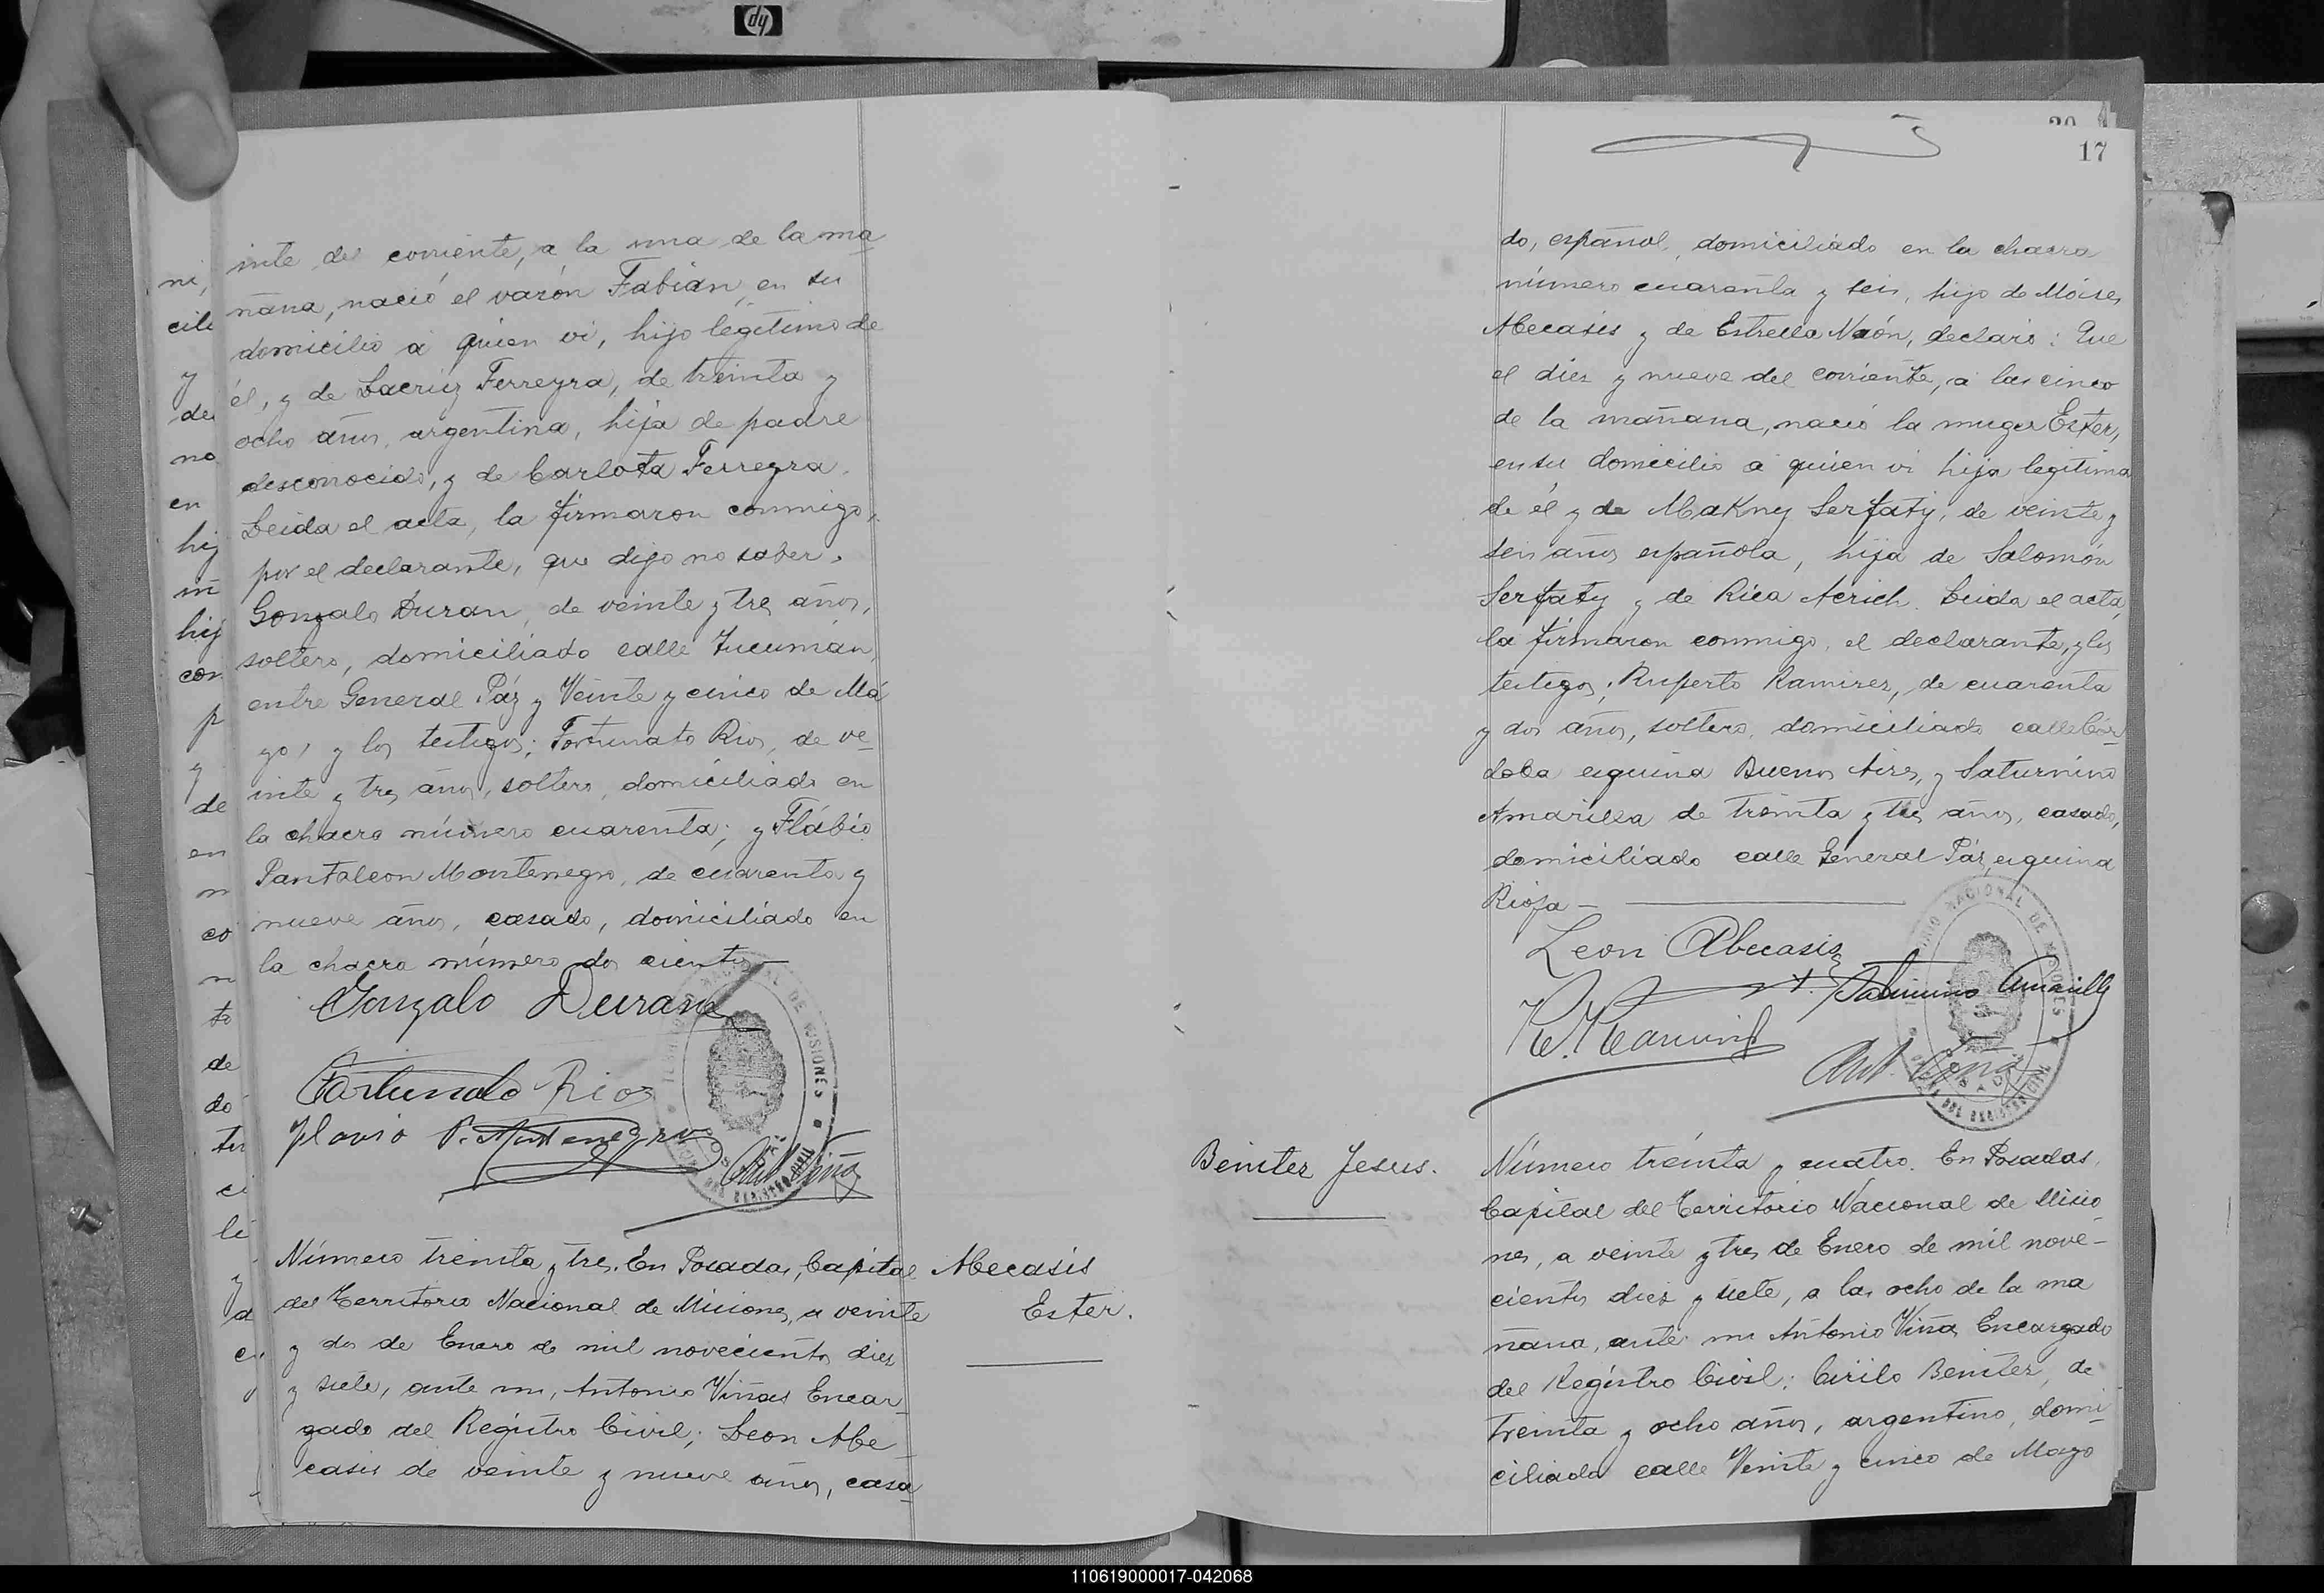 hp
inte del corriente, a la una de la ma
ñana, nació el varón Fabián, en su
domicilio a quien vi, hijo legítimo de
él, y de Lacruz Ferreyra, de treinta y
ocho años, argentina, hija de padre
desconocido, y de Carlota Ferreyra.
Leida el acta, la firmaron conmigo,
por el declarante, que dijo no saber,
Gonzalo Duran, de veinte y tres años,
soltero, domiciliado calle Tucumán,
entre General Páz y Veinte y cinco de Ma
yo, y los testigos; Fortunato Rios, de ve
inte y tres años, soltero, domiciliado en
la chacra número cuarenta; y Flábio
Pantaleon Montenegro, de cuarenta y
nueve años, casado, domiciliado en
la chacra número dos cientos
Gonzalo Duran
Fortunato Rios
Flavio P. Montenegro
Ant. Viña
Número treinta y tres. En Posadas, Capital
del Territorio Nacional de Misiones, a veinte
y dos de Enero de mil novecientos diez
y siete, ante mi, Antonio Viñas Encar
gado del Registro Civil; Leon Abe
casis de veinte y nueve años, casa
Abecasis
Ester.
17
do, español, domiciliado en la chacra
número cuarenta y seis, hijo de Móises
Abecasis y de Estrella Naón, declaró: Que
el diez y nueve del corriente, a las cinco
de la mañana, nació la muger Ester,
en su domicilio a quien vi hija legitima
de él y de Makny Serfaty, de veinte y
seis años española, hija de Salomón
Serfaty y de Rica Acrich. Leida el acta,
la firmaron conmigo, el declarante, y los
testigos; Ruperto Ramirez, de cuarenta
y dos años, soltero, domiciliado calle Cór
doba esquina Buenos Aires, y Saturnino
Amarilla de treinta y tres años, casado,
domiciliado calle General Páz, esquina
Rioja —
Leon Abecasis
R. Ramirez
Saturnino Amarilla
Ant. Viña
Benitez Jesus.
Número treinta y cuatro. En Posadas,
Capital del Territorio Nacional de Misio
nes, a veinte y tres de Enero de mil nove-
cientos diez y siete, a las ocho de la ma
ñana, ante mi Antonio Viña, Encargado
del Registro Civil; Cirilo Benitez, de
treinta y ocho años, argentino, domi
ciliado calle Veinte y cinco de Mayo
110619000017-042068